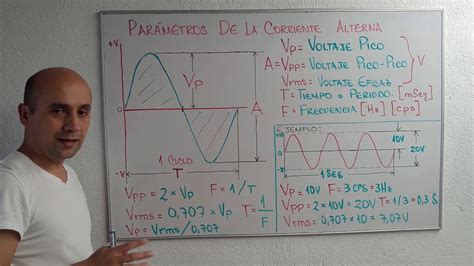 PARÁMETROS DE LA CORRIENTE ALTERNA
+V
0
-V
Vp
A
1 CICLO
T
Vp = VOLTAJE PICO
A = Vpp = VOLTAJE PICO-PICO
V
Vrms = VOLTAJE EFICAZ
T = TIEMPO o PERIODO. [mSeg]
F = FRECUENCIA [Hz] [cps]
EJEMPLO:
10V
0
20V
1 SEG
Vpp = 2 x Vp F = 1/T
Vrms = 0,707 x Vp T = 1/F
Vp = Vrms/0,707
Vp = 10V F = 3 cps = 3Hz
Vpp = 2 x 10V = 20V T = 1/3 = 0,3 S
Vrms = 0,707 x 10 = 7,07V